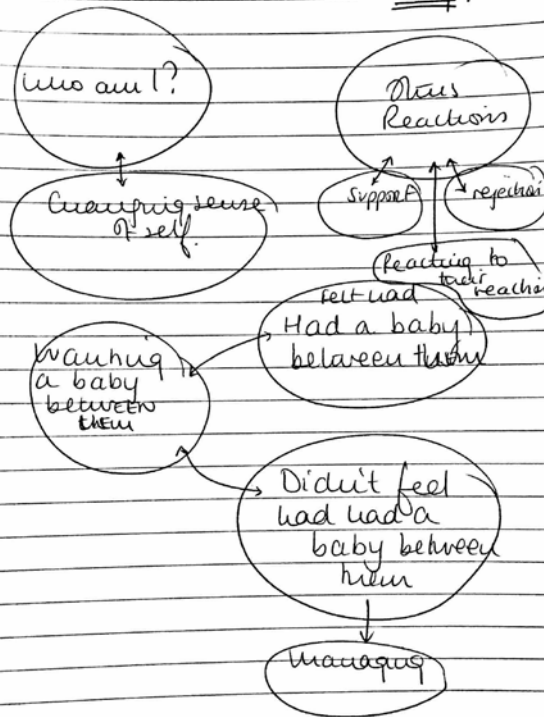 Who am I?
Others
Reactions
Changing sense
of self.
support
rejection
Reacting to
their
reaction
Felt had
Had a baby
between them
Wanting
a baby
between
them
Didn't feel
had had a
baby between
them
Managing